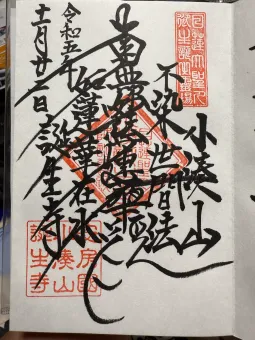 日蓮大聖人
御生誕之霊場
小湊山
不染世間法
南無妙法蓮華経
如蓮華在水
令和五年
十一月廿三日
誕生寺
安房國
小湊山
誕生寺